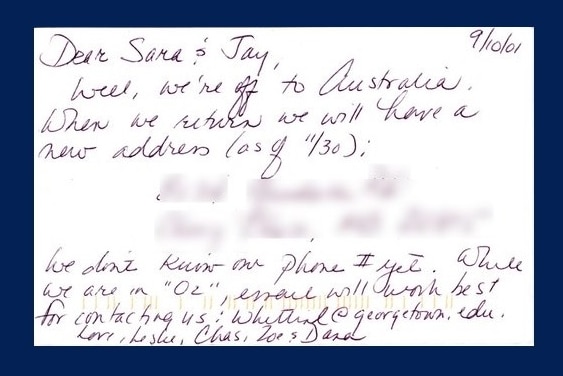 9/10/01
Dear Sara & Jay,
Well, we're off to Australia.
When we return we will have a
new address (as of 11/30):
We don't know our phone # yet. While
we are in "Oz" email will work best
for contacting us: whittind@georgetown.edu.
Love, Leslie, Chas, Zoe & Dana